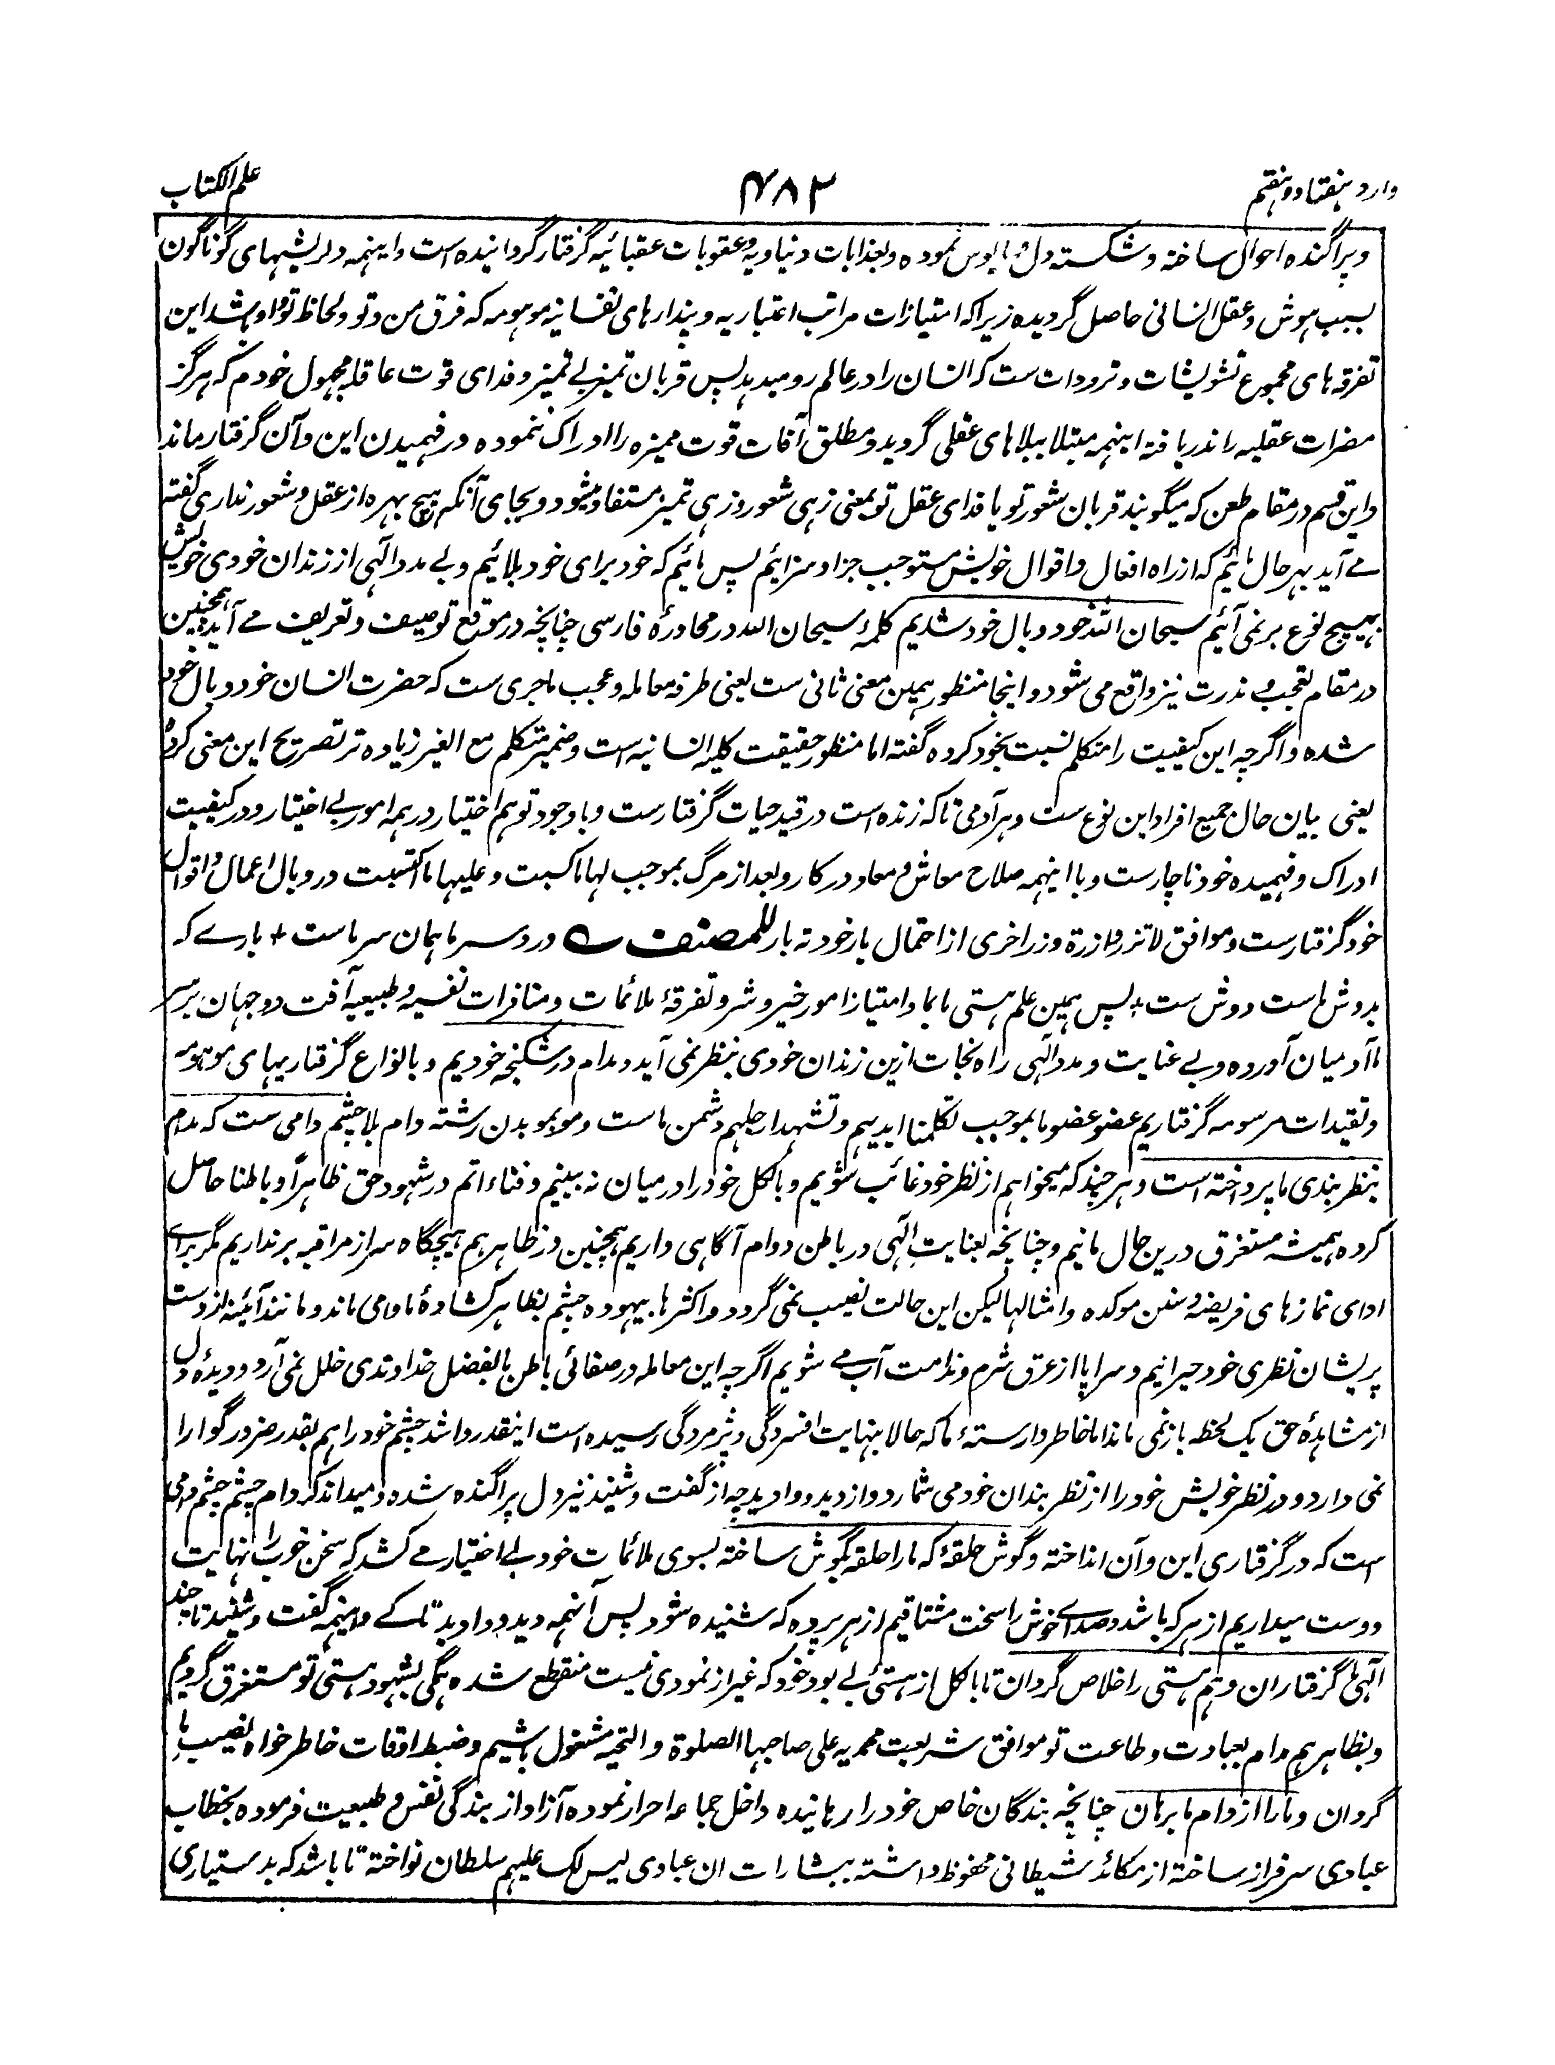 وارد هفتاد و هفتم
۴۸۲
علم الکتاب
و پراگنده احوال ساخته و شکسته دل و مایوس نموده و بعذابات دنیاویه و عقوبات عقبائیه گرفتار گردانیده است و اینهمه دلریشیهای گوناگون
بسبب هوش و عقل انسانی حاصل گردیده زیراکه امتیازات مراتب اعتباریه و پندارهای نفسانیه موهومه که فرق من و تو و لحاظ تو و او باشد این
تفرقه های مجموع تشویشات و ترددات ست که انسان را در عالم رو میدهد پس قربان تمیز بے تمیز و فدای قوت عاقله مجهول خودم که هرگز
مضرات عقلیه را ندریافته اینهمه مبتلا ببلاهای عقلی گردید و مطلق آفات قوت ممیزه را ادراک ننموده در فهمیدن این و آن گرفتار ماند
و این قسم در مقام طعن که میگویند قربان شعور تو یا فدای عقل تو بمعنی زهی شعور و زهی تمیز مستفاد میشود و بجای آنکه هیچ بهره از عقل و شعور نداری گفته
مے آید بهر حال مائیم که از راه افعال و اقوال خویش مستوجب جزا و سزائیم پس مائیم که خود برای خود بلائیم و بے مدد الٓهی از زندان خودی خویش
بهیچ نوع بر نمی آئیم سبحان الله خود وبال خود شدیم کلمهٔ سبحان الله در محاورهٔ فارسی چنانچه در موقع توصیف و تعریف مے آید همچنین
در مقام تعجب و ندرت نیز واقع می شود و اینجا منظور همین معنی ثانی ست یعنی طرفه معامله و عجب ماجری ست که حضرت انسان خود وبال خود
شده و اگرچه این کیفیت را متکلم نسبت بخود کرده گفته اما منظور حقیقت کلیه انسانیه است و ضمیر متکلم مع الغیر زیاده تر تصریح این معنی کرده
یعنی بیان حال جمیع افراد این نوع ست و هر آدمی تا که زنده است در قید حیات گرفتار ست و با وجود توهم اختیار در همه امور بے اختیار و در کیفیت
ادراک و فهمیده خود ناچار ست و با اینهمه صلاح معاش و معاد در کار و بعد از مرگ بموجب لها ما کسبت و علیها ما اکتسبت در وبال اعمال و اقوال
خود گرفتار ست و موافق لا تزر وازرة وزر اخری از احتمال بار خود ته بار للمصنف ے درد سر ما همان سر ماست + بارے که
بدوش ماست دوش ست + پس همین علم هستی ما بما و امتیاز امور خیر و شر و تفرقهٔ ملائمات و منافرات نفسیه و طبیعیه آفت دو جهان بر سر
ما آدمیان آورده و بے عنایت و مدد الٓهی راه نجات ازین زندان خودی بنظر نمی آید و مدام در شکنجه خودیم و بانواع گرفتاریهای موهومه
و تقیدات مرسومه گرفتاریم عضو عضو ما بموجب تکلمنا ایدیهم و تشهد ارجلهم دشمن ماست و مو بمو بدن رشته دام بلا چشم دامی ست که مدام
بنظر بندی ما پرداخته است و هر چند که میخواهم از نظر خود غائب شویم و بالکل خود را درمیان نه بینیم و فناء اتم در شهود حق ظاهراً و باطنا حاصل
کرده همیشه مستغرق درین حال مانیم و چنانچه بعنایتِ الٓهی در باطن دوام آگاهی داریم همچنین در ظاهر هم هیچگاه سر از مراقبه بر نداریم مگر براے
ادای نمازهای فریضه و سنن موکده و امثالها لیکن این حالت نصیب نمی گردد و اکثرها بیهوده چشم بظاهر کشادهٔ ما وامی ماند و مانند آئینه از دست
پریشان نظری خود حیرانیم و سراپا از عرق شرم و ندامت آب مے شویم اگرچه این معامله در صفائی باطن ما بفضل خداوندی خلل نمی آرد و دیدهٔ دل
از مشاهدهٔ حق یک لحظه باز نمی ماند اما خاطر وارستهٔ ما که حالا بنهایت افسردگی و پژمردگی رسیده است اینقدر واشد چشم خود را هم بقدر ضرور گوارا
نمی دارد و در نظر خویش خود را از نظر بندان خود می شمارد و از دید و وادید چه از گفت و شنید نیز دل پراگنده شده و میداند که دام چشم چشم دامی
ست که در گرفتاری این و آن انداخته و گوش حلقهٔ که ما را حلقه بگوش ساخته بسوی ملائمات خود بے اختیار مے کشد که سخن خوب را نهایت
دوست میداریم از هر که باشد و صداے خوش را سخت مشتاقیم از هر پرده که شنیده شود پس آنهمه دید و وادید تا کے و اینهمه گفت و شنید تا چند
الٓهی ما گرفتاران وهم هستی را خلاص گردان تا بالکل از هستی بے بود خود که غیر از نمودی نیست منقطع شده همگی بشهود هستی تو مستغرق گردیم
و بظاهر هم مدام بعبادت و طاعت تو موافق شریعت محمدیه علی صاحبها الصلوة و التحیه مشغول باشیم و ضبط اوقات خاطر خواه نصیب ما
گردان و ما را از دام ما برهان چنانچه بندگان خاص خود را رهانیده داخل جماعه احرار نموده آزاد از بندگی نفس و طبیعت فرموده بخطاب
عبادی سرفراز ساخته از مکائد شیطانی محفوظ داشته ببشارات ان عبادی لیس لک علیهم سلطان نواخته تا باشد که بدستیاری